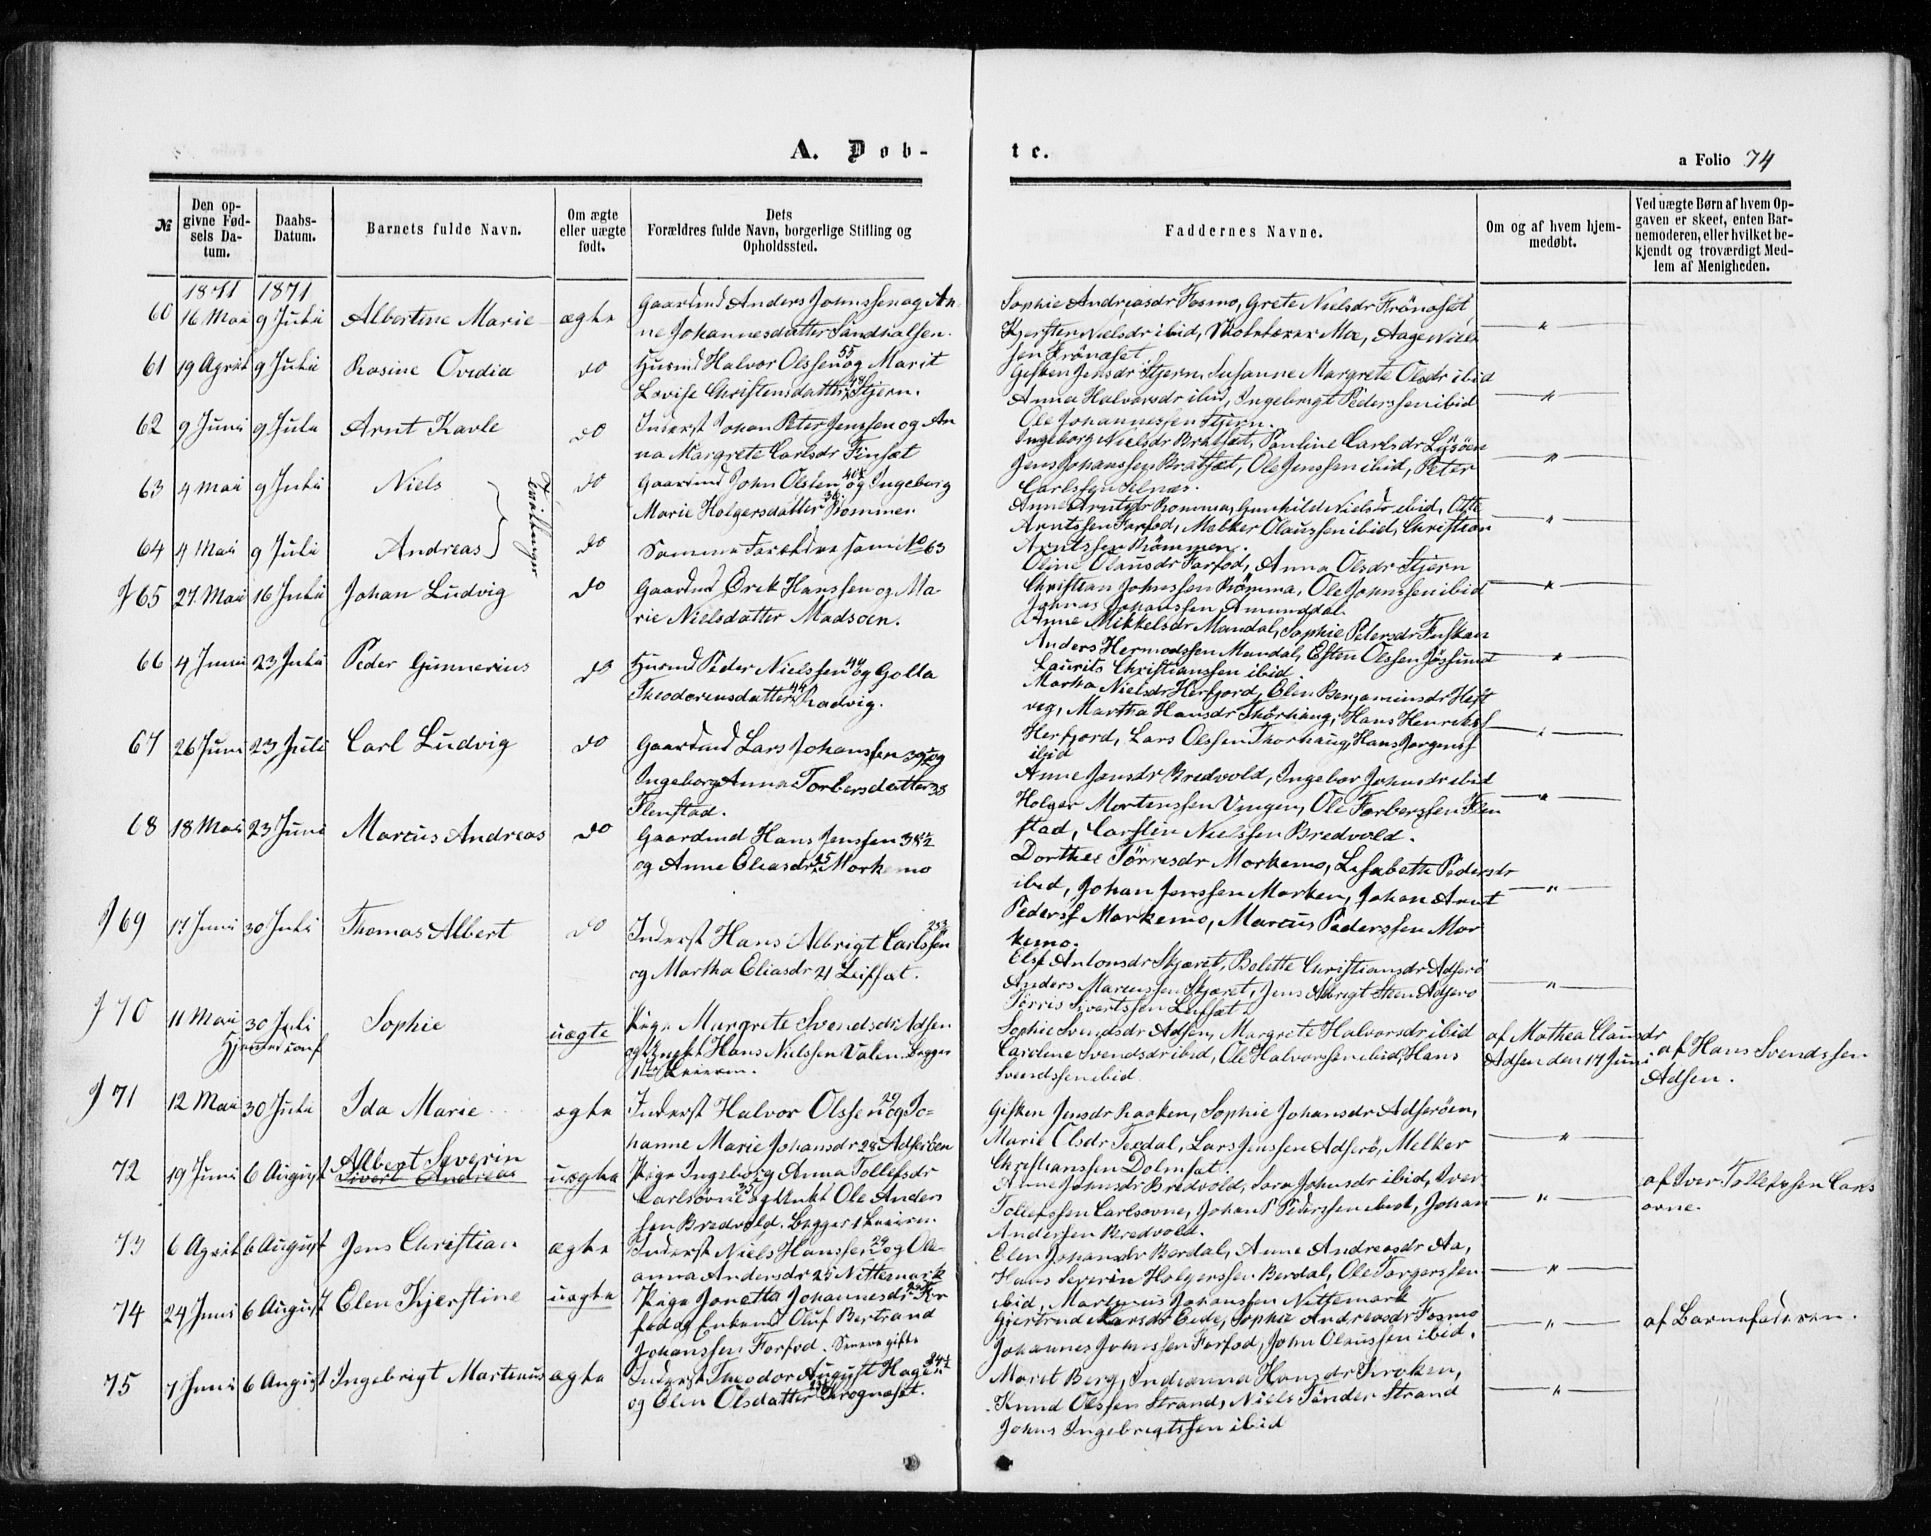 A. Døb-
te.
a Folio 74
№
Den op-
givne Fød-
sels Da-
tum.
Daabs-
Datum.
Barnets fulde Navn.
Om ægte
eller uægte
født.
Dets
Forældres fulde Navn, borgerlige Stilling og
Opholdssted.
Faddernes Navne.
Om og af hvem hjem-
medøbt.
Ved uægte Børn af hvem Op-
gaven er skeet, enten Bar-
nemoderen, eller hvilket be-
kjendt og troværdigt Med-
lem af Menigheden.
1871 1871
60 16 Mai 9 Juli Albertine Marie ægte
Gaardmd Anders Johnssen og An-
ne Johannesdatter Sundsalsen.
Sophie Andreasdr Fosmo, Grete Nielsdr Frönæset,
Kjersten Nielsdr ibid, Skolelærer Moe, Aage Niels
sen Frönæset.
61 19 April 9 Juli Rosine Ovidia do
Husmd Halvor Olssen 55 og Marit
Lovise Christensdatter Stjern.
Gisken Jensdr Stjern, Susanne Margrete Olsdr ibid
Anna Halvorsdr ibid, Ingebrigt Pederssen ibid
Ole Johannessen Stjern.
62 9 Juni 9 Jule Arnt Kavle do
Inderst Johan Peter Jenssen og An
na Margrete Carlsdr Finsæt
Ingeborg Nielsdr Bratsæt, Pauline Carlsdr Lysøen
Jens Johanssen Bratsæt, Ole Jenssen ibid, Peter
Carlssen Selnæs.
63 4 Mai 9 Juli Niels do
Tvillinger
Gaardmd John Olssen og Ingeborg
Marie Holgersdatter 36 Römmen
Anne Arntsdr Romma, Gunhilde Nielsdr ibid, Otte
Arntssen Farfod, Melker Olaussen ibid, Christian
Arntssen Römmen.
64 4 Mai 9 Juli Andreas do
Samme Forældre som No 63
Oline Olausdr Farfod, Anna Olsdr Stjern
Christian Johnssen Römma, Ole Johnssen ibid
Johnas Johanssen Amunddal.
65 27. Mai 16 Juli Johan Ludvig do
Gaardmd Erik Hanssen og Ma-
rie Nielsdatter Madsøen.
Anne Mikkelsdr Mandal, Sophie Petersdr
Anders Hermodssen Mandal, Esten Olssen Jøssund
Laurits Christianssen ibid.
66 4 Juni 23 Juli Peder Gunnerius do
Husmd Peder Nielssen 44 og Golla
Theodorensdatter Radvig.
Martha Nielsdr Herfjord, Elen Benjaminsdr Heft
vig, Martha Hansdr Thörhaug, Hans Henriksf
Herfjord, Lars Olssen Thorhaug, Hans Jørgensf
ibid
67 26 Juni 23 Juli Carl Ludvig do
Gaardmd Lars Johanssen 39½ og
Ingeborg Anna Torbersdatter 38
Flenstad.
Anne Jensdr Bredvold, Ingebor Johnsdr ibid
Holger Mortenssen Vingen, Ole Torberssen Flen
stad, Carsten Nielssen Bredvold.
68 18 Mai 23 Juni Marcus Andreas do
Gaardmd Hans Jenssen
og Anne Eliasdr 35 Morkemo
Dorthee Törrisdr Morkemo, Lisabeth Pedersdr
ibid, Johan Jenssen Morken, Johan Arnt
Pedersf Morkemo, Marcus Pederssen Mor
kemo.
69 17 Juni 30 Juli Thomas Albert do
Inderst Hans Albrigt Carlssen
og Martha Eliasdr 21 Leifsæt.
Else Antonsdr Skjæret, Bolette Christiansdr Adserö
Anders Marcussen Skjæret, Jens Albrigt Steen Adserö
Törris Sivertssen Leifsæt.
70 11 Mai 30 Juli Sophie uægte
Hjemmed conf
Pige Margrete Svendsdr Adsen
og Ungkl Hans Nielssen Valen. Begges
1ste Leierm.
Sophie Svendsdr Adsen, Margrete Halvorsdr ibid
Caroline Svendsdr ibid, Ole Halvorssen ibid, Hans
Svendssen ibid.
af Mathea Clausdr
Adsen den 17 Juni
af Hans Svendssen
Adsen.
71 12 Mai 30 Juli Ida Marie ægte
Inderst Halvor Olssen 29 og Jo-
hanne Marie Johansdr 28 Adserøen
Gisken Jensdr Raaken, Sophie Johansdr Adserøen,
Marie Olsdr Texdal, Lars Jenssen Adserö, Melker
Christianssen Dolmsæt.
72 19 Juni 6 August Albert Severin
Sivert Andreas uægte
Pige Ingeborg Anna Tollefsdr
Carlsövne og Unkl Ole Anders
sen Bredvold. Begges 1 Leierm.
Anne Johnsdr Bredvold, Sara Johnsdr ibid, Iver
Tollefssen Carlsovne, Johan P Pederssen ibid, Johan
Anderssen Bredvold.
af Iver Tollefssen Carls
ovne.
73 6 April 6 August Jens Christian ægte
Inderst Niels Hanssen 29 og Ole-
anna Andersdr 25 Nittemark
Elen Johansdr Berdal, Anne Andreasdr Aa,
Hans Severin Holgerssen Berdal, Ole Torgerssen
ibid, Martinus Johanssen Nittemark
74 24 Juni 6 August Elen Kjerstine uægte
Pige Jonetta Johannesdr Far
fod og Enkemd Oluf Bertrand
Johanssen Farfod. Senere gifte
Gjertrud Larsdr Eide, Sophie Andreasdr Fosmo
Johannes Johnssen Farfod, John Olaussen ibid.
af Barnefaderen.
75 7 Juni 6 August Ingebrigt Martinus ægte
Inderst Theodor August Hagen
og Elen Olsdatter Krognæset.
Maret Berg, Indianna Hansdr Kroken,
Knud Olssen Strand, Niels Tönder Strand
Johns Ingebrigtssen ibid